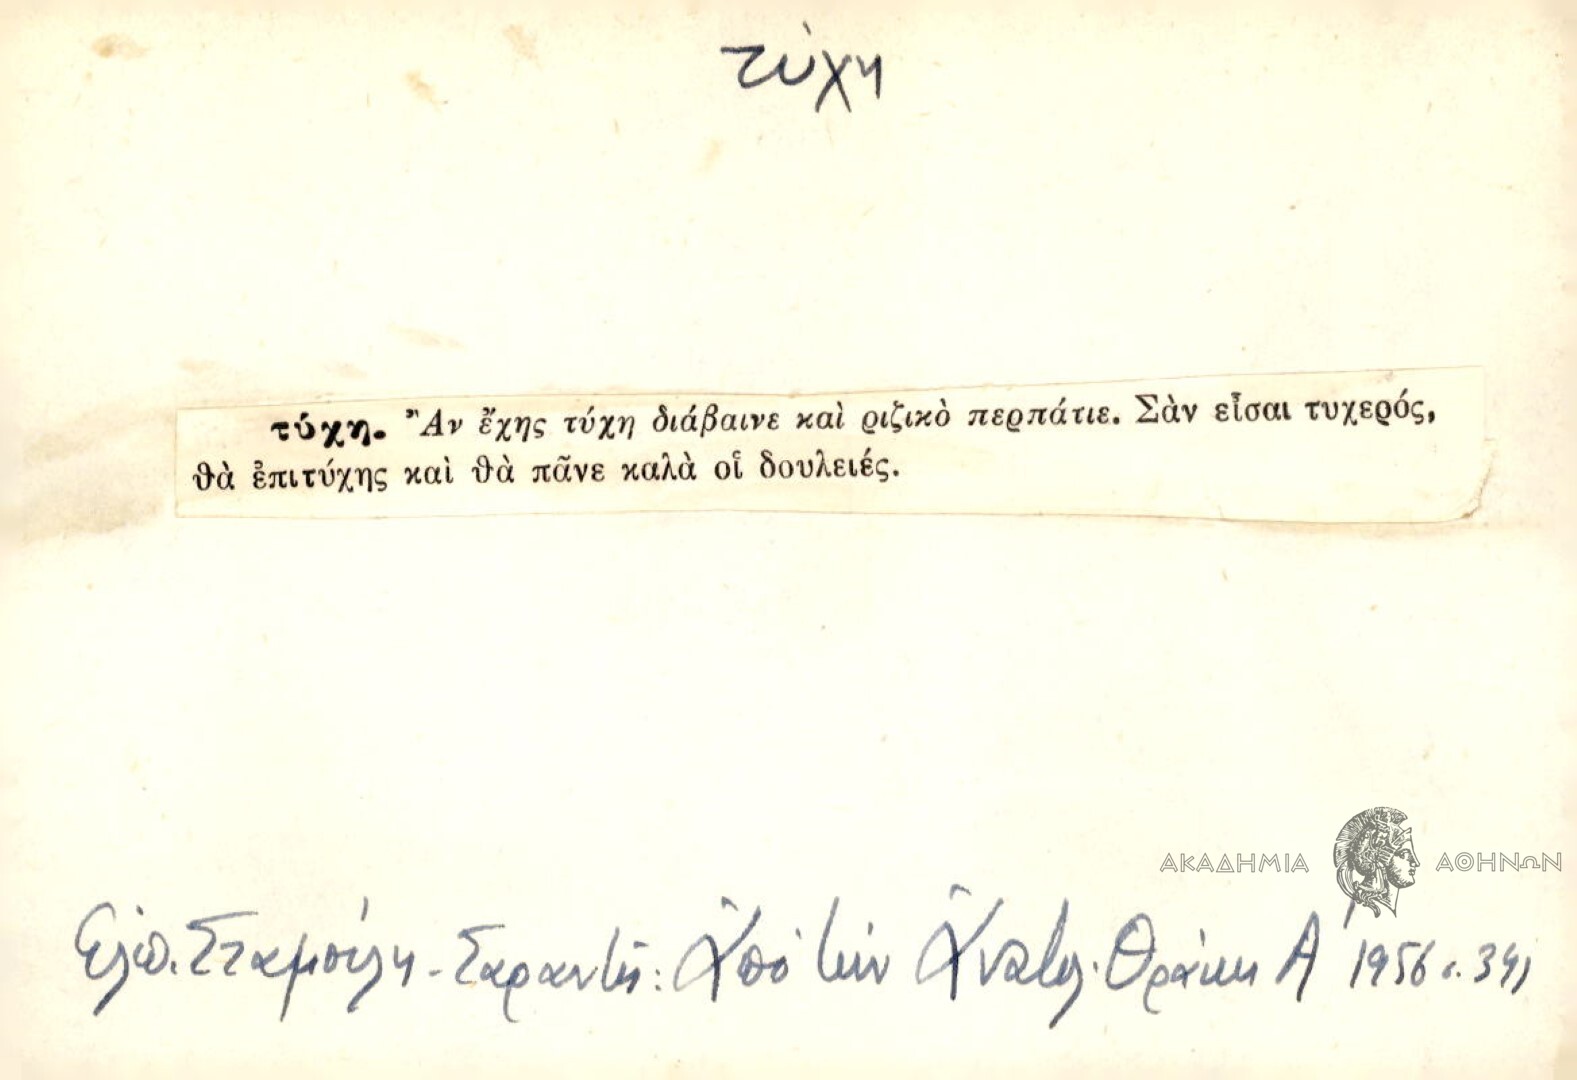 τύχη
τύχη. Ἂν ἔχης τύχη διάβαινε καὶ ριζικὸ περπάτιε. Σὰν εἶσαι τυχερός,
θὰ ἐπιτύχης καὶ θὰ πᾶνε καλὰ οἱ δουλειές.
ΑΚΑΔΗΜΙΑ ΑΘΗΝΩΝ
Ἐλπ. Σταμούλη - Σαραντῆ: Ἀπὸ τὴν Ἀνατολ. Θράκη Α' 1956 σ. 341